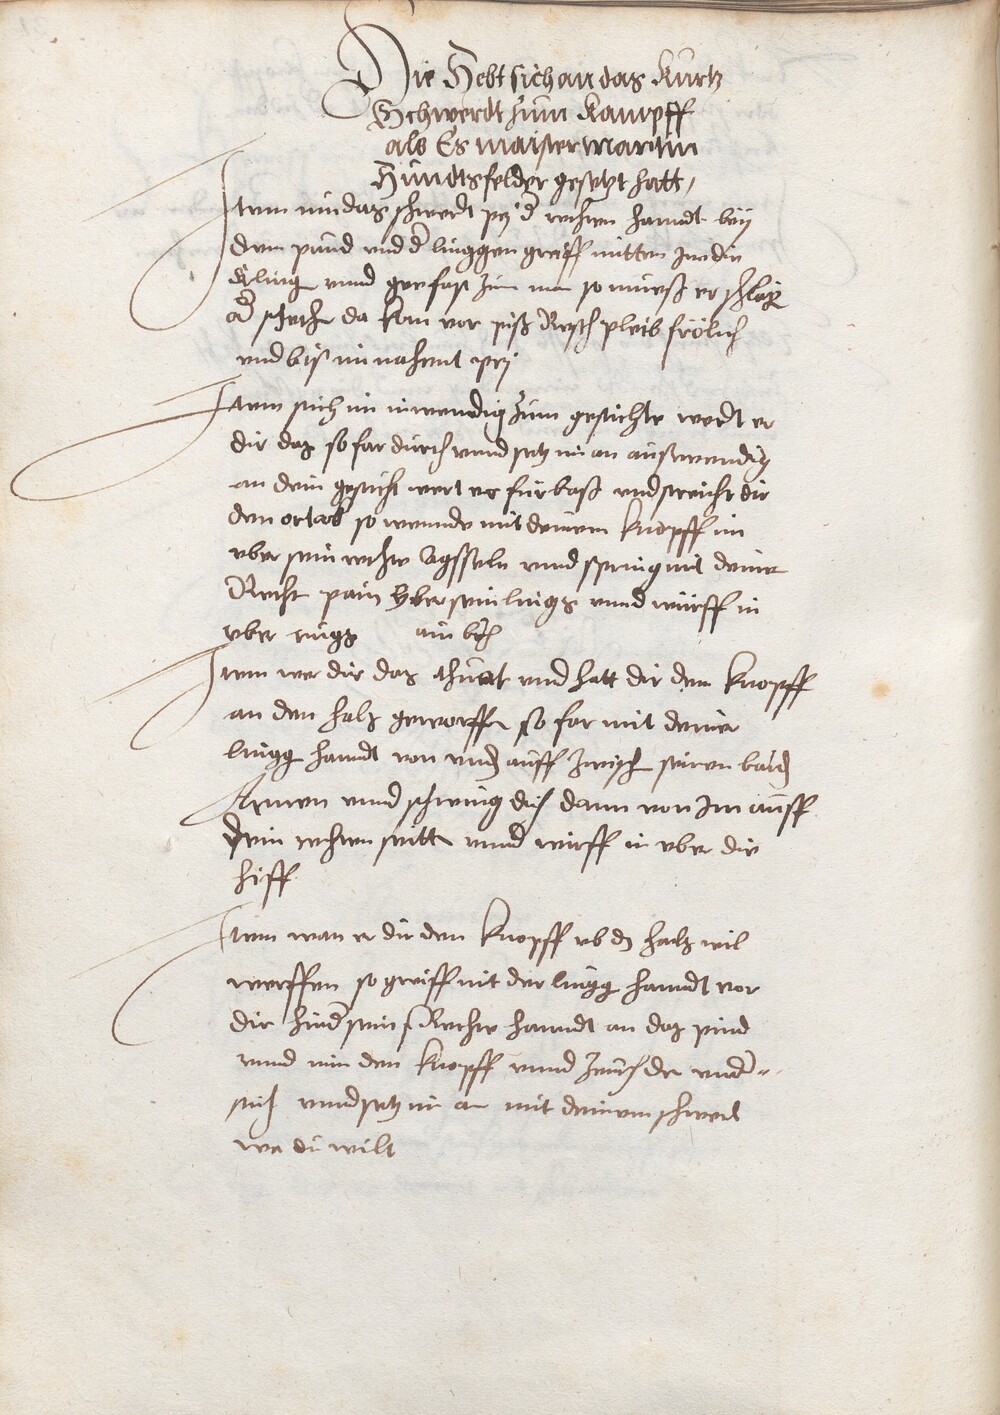 Die Hebt sich an das Kurtz
Schwerdt zum Kampff
als Es maister martin
Hundtsfelder gesetzt hatt,
Item nim das schwerdt pey d' rechten hanndt bey
dem pind vnd d' linggen greiff mitten Inn die
kling vnnd gee fast zu im so mueß er schlag
od' stech da kom vor piß Resch pleib frölich
vnd biß im nahent pey
Item stich im inwendig zum gesichte wert er
dir das so far durch vnnd setz im an auswendig
an dein gesicht wert er fürbaß vnd streicht dir
den ort ab so wennde mit deinem knopff im
vber sein rechte Agsseln vnnd spring mit deine
Recht pain vber sein lings vnnd würff in
vber rugg ain br̃ch
Item wer dir das thuet vnd hatt dir den knopff
an den halß geworffn so far mit deiner
lingg hanndt von vnd̃ auff zwisch seinen baid̃
Armen vnnd schwing dich dann von Im auff
dein rechten seittn vnnd wirff in vber die
hiff
Item wan er dir den knopff vb dñ halß wil
werffen so greiff mit der lingg hanndt vor
dir hind' sein Rechte hanndt an das pind
vnnd nim den knopff vnnd zeuch de vnd'
sich vnnd setz im an mit deinem schwert
wa du wilt